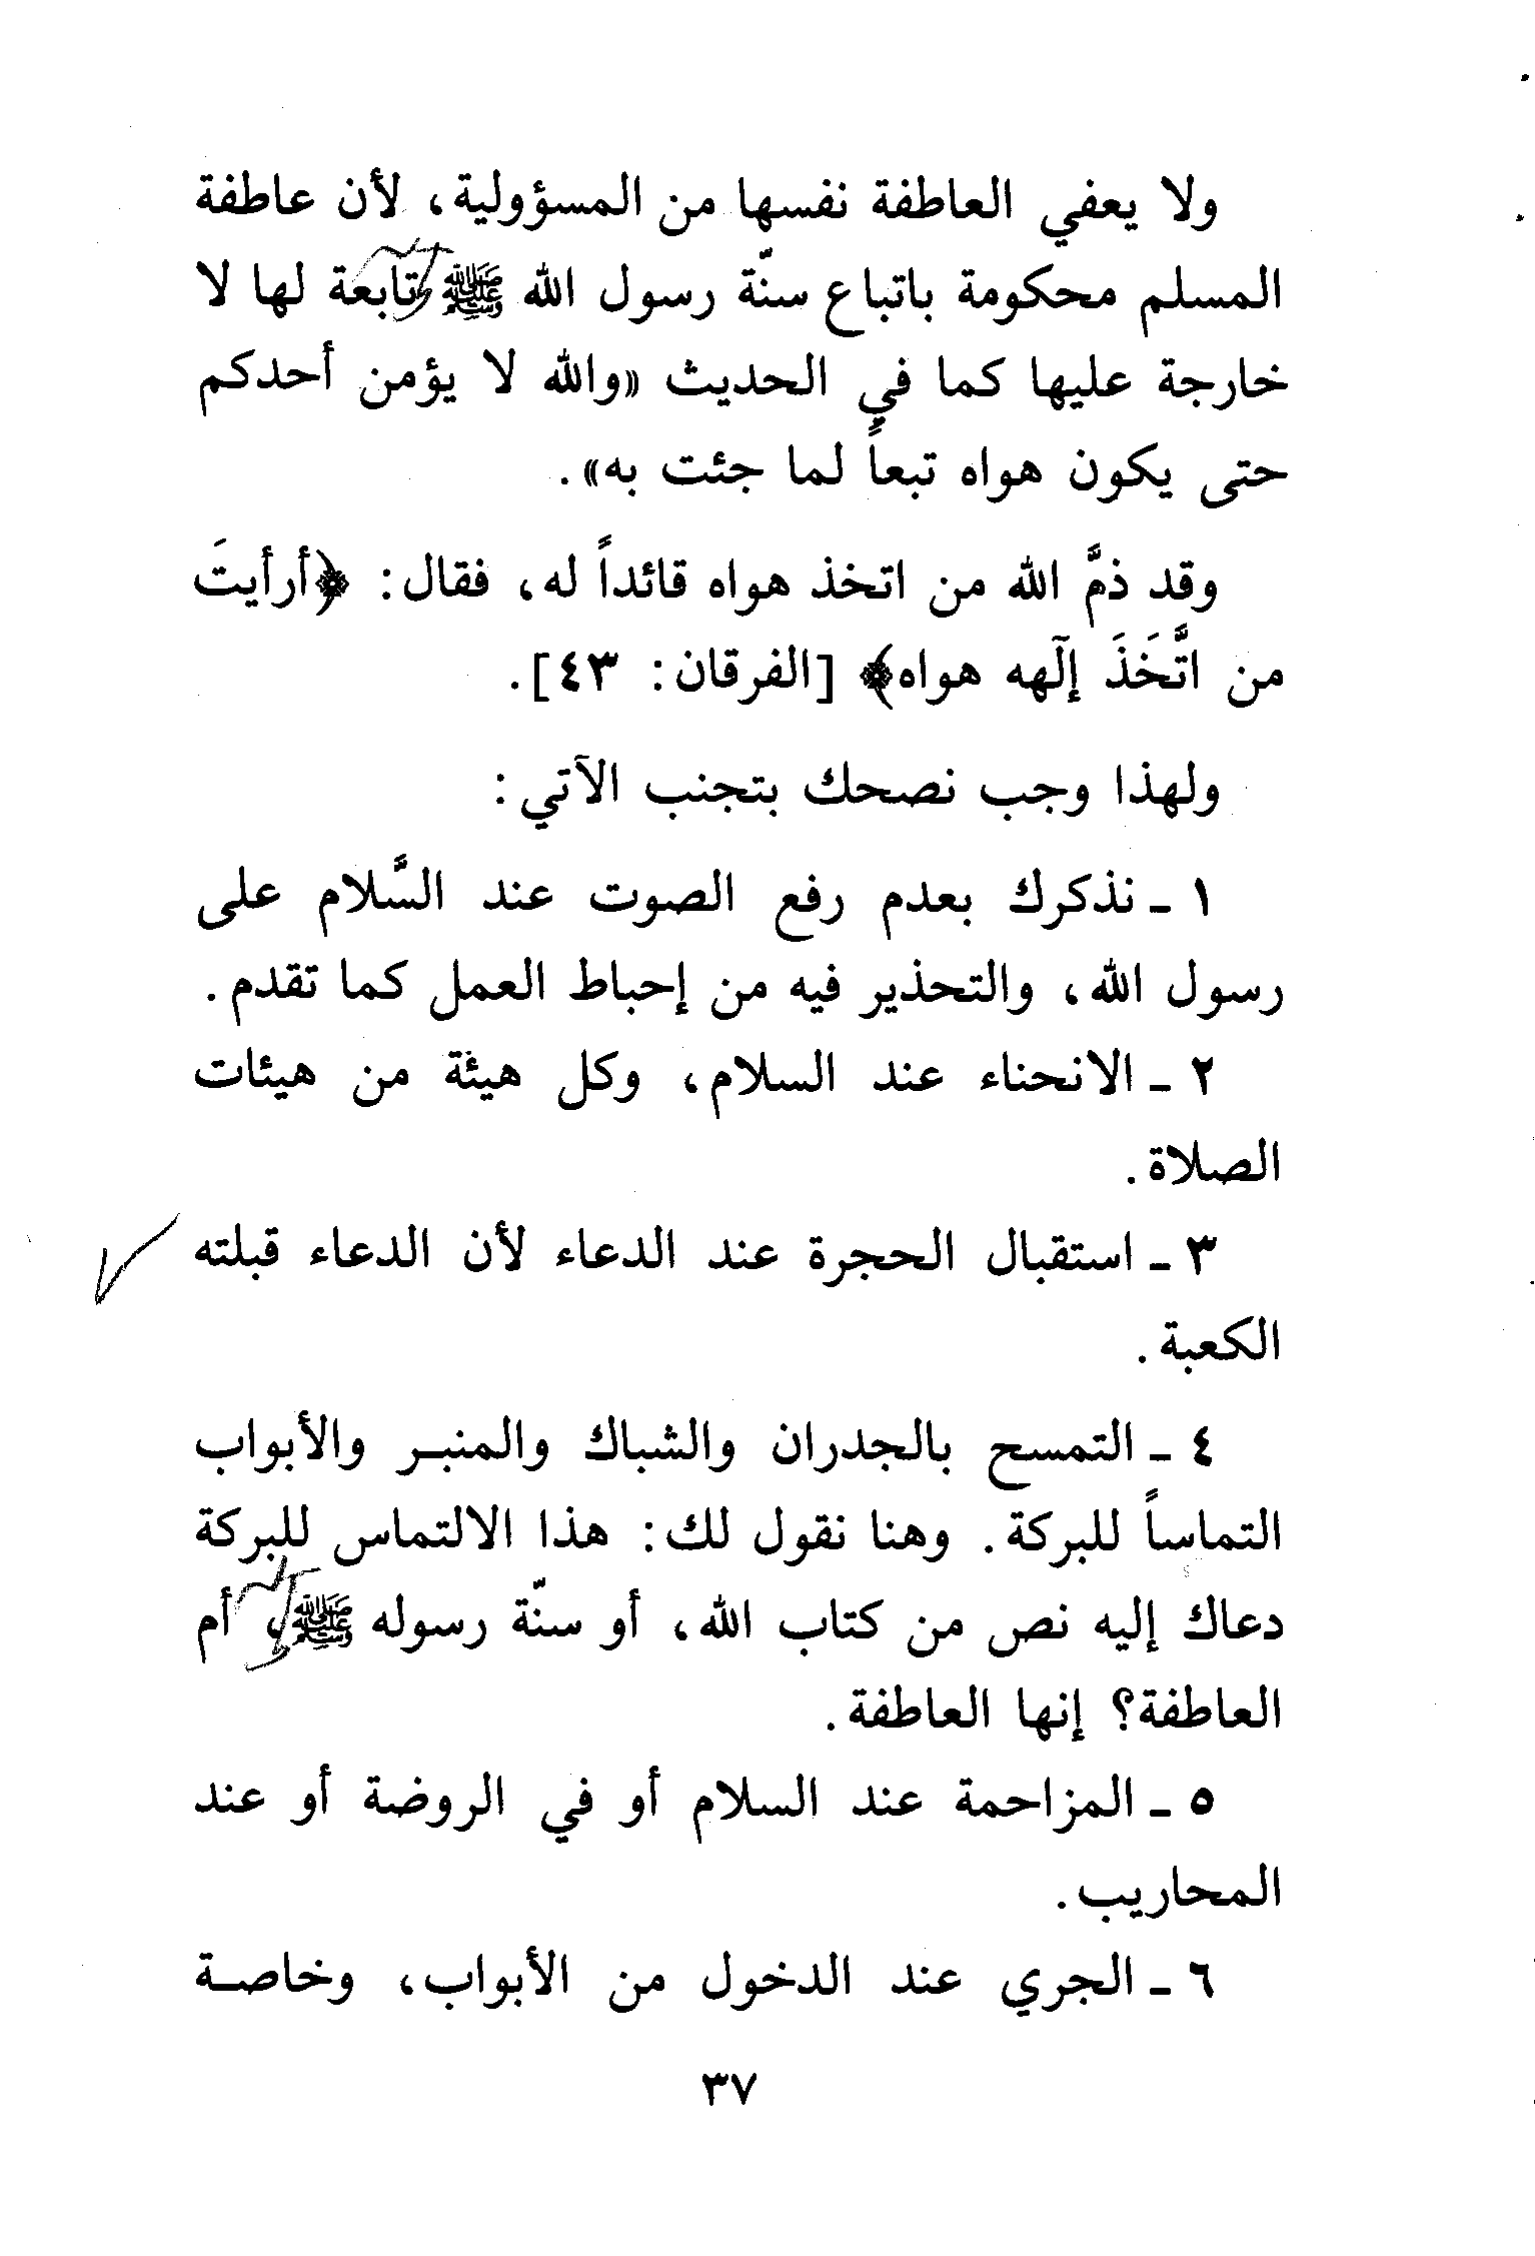 ولا يعفي العاطفة نفسها من المسؤولية، لأن عاطفة
المسلم محكومة باتباع سنّة رسول الله ﷺ تابعة لها لا
خارجة عليها كما في الحديث «والله لا يؤمن أحدكم
حتى يكون هواه تبعاً لما جئت به».
وقد ذمَّ الله من اتخذ هواه قائداً له، فقال: ﴿أرأيتَ
من اتَّخَذَ إلَهه هواه﴾ [الفرقان: ٤٣].
ولهذا وجب نصحك بتجنب الآتي:
١ ـ نذكرك بعدم رفع الصوت عند السَّلام على
رسول الله، والتحذير فيه من إحباط العمل كما تقدم.
٢ ـ الانحناء عند السلام، وكل هيئة من هيئات
الصلاة.
٣ ـ استقبال الحجرة عند الدعاء لأن الدعاء قبلته
الكعبة.
٤ ـ التمسح بالجدران والشباك والمنبـر والأبواب
التماساً للبركة. وهنا نقول لك: هذا الالتماس للبركة
دعاك إليه نص من كتاب الله، أو سنّة رسوله ﷺ، أم
العاطفة؟ إنها العاطفة.
٥ ـ المزاحمة عند السلام أو في الروضة أو عند
المحاريب.
٦ ـ الجري عند الدخول من الأبواب، وخاصـة
٣٧